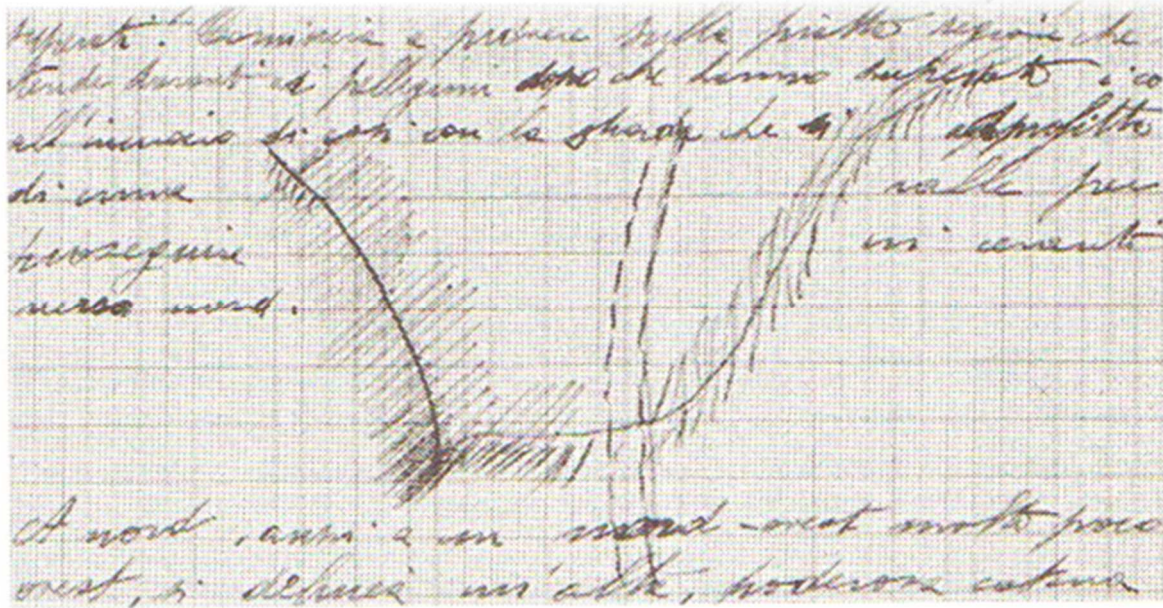 Comincia a piovere sulla piatta regione che
davanti ai pellegrini dopo che hanno superato i co
all'inizio di così con la strada che si approfitta
di una valle per
proseguire avanti
verso nord.
A nord, anzi a un nord-ovest molto poco
ovest, si delinea un'alta, poderosa catena